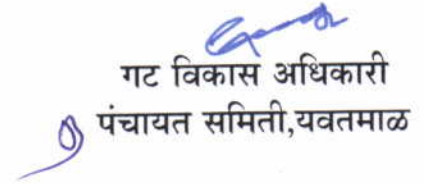 गट विकास अधिकारी
पंचायत समिती,यवतमाळ